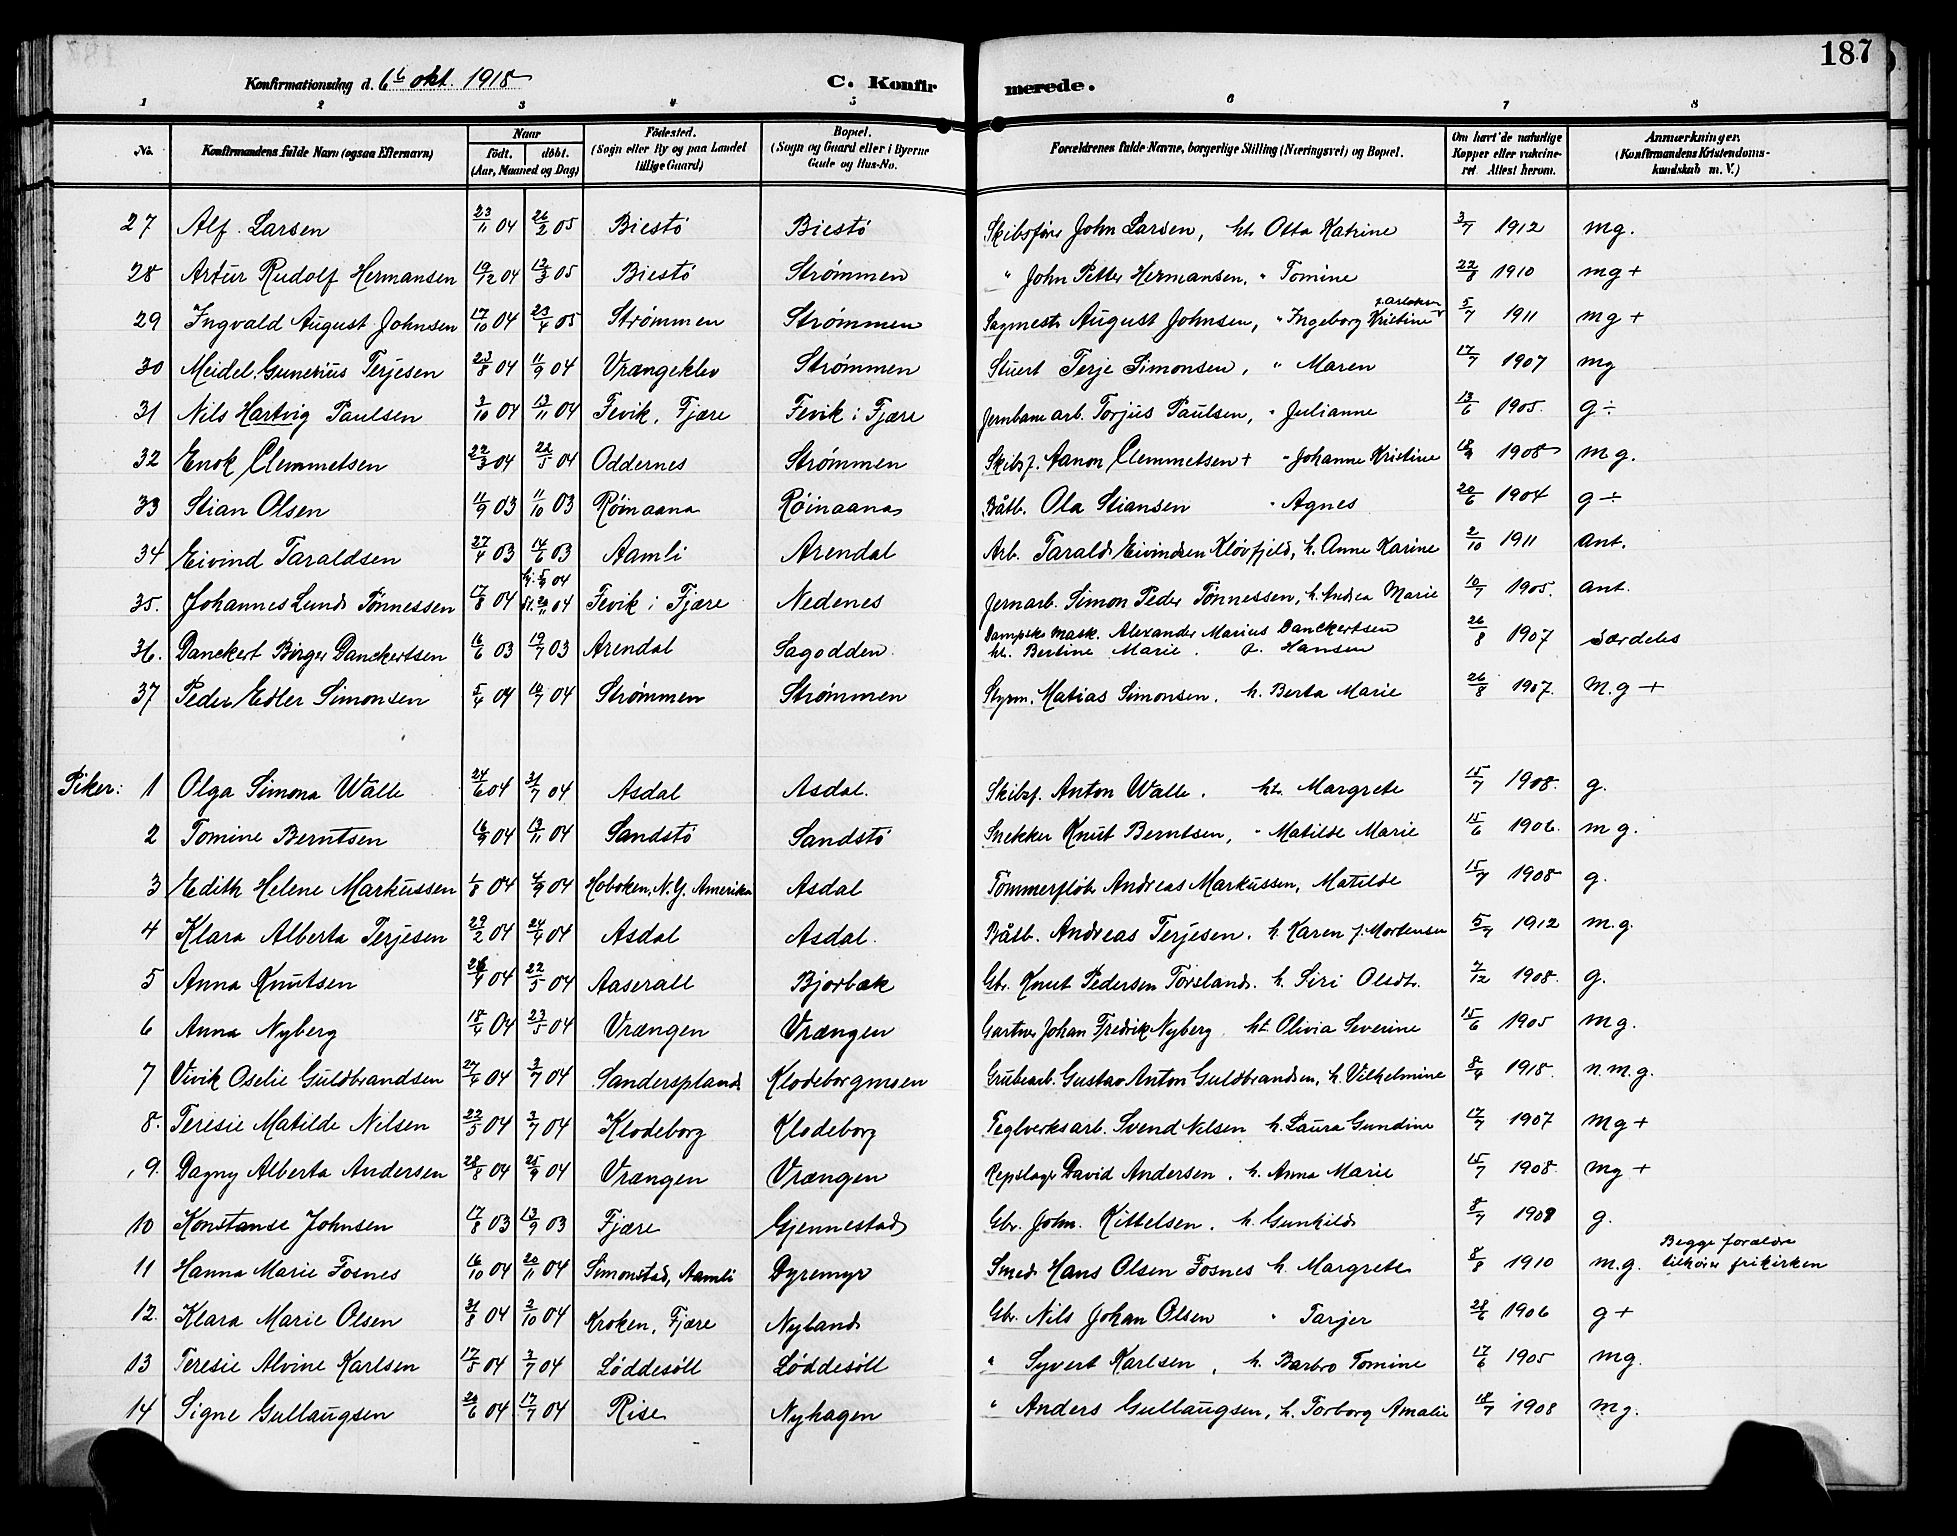 187
Konfirmationsdag d. 6t okt. 1918 C. Konfirmerede.
1 2 3 4 5 6 7 8
No. Konfirmandens fulde Navn (ogsaa Efternavn) Naar födt. döbt. (Aar, Maaned og Dag) Födested. (Sogn eller By og paa Landet tillige Gaard) Bopæl. (Sogn og Gaard eller i Byerne Gade og Hus-No. Forældrenes fulde Navne, borgerlige Stilling (Næringsvei) og Bopæl. Om havt de naturlige Kopper eller vakcineret. Attest herom. Anmærkninger. (Konfirmandens Kristendomskundskab m. V.)
27 Alf Larsen 23/11 04 26/2 05 Biestö Biestö Skibsfører John Larsen, h. Otta Katrine 3/7 1912 mg.
28 Artur Rudolf Hermansen 19/12 04 12/3 05 Biestö Strømmen " John Petter Hermansen, " Tomine 22/8 1910 mg +
29 Ingvald August Johnsen 17/10 04 23/4 05 Strømmen Strømmen Sagmest. August Johnsen, " Ingeborg Kristine 5/7 1911 mg +
30 Meidel Gunerius Terjesen 23/8 04 11/9 04 Vrængeklev Strømmen Stuert Terje Simonsen, " Maren 17/7 1907 mg
31 Nils Hartvig Paulsen 3/10 04 13/11 04 Fevik, Fjære Fevik i Fjære Jernbanearb. Torjus Paulsen, " Julianne 13/6 1905. g ÷
32 Enok Clemmetsen 22/3 04 22/5 04 Oddernes Strømmen Skibsf. Aanon Clemmetsen + " Johanne Kristine 1908 mg.
33 Stian Olsen 11/9 03 11/10 03 Röinaana Röinaana Båtb. Ola Stiansen " Agnes 20/6 1904 g ÷
34 Eivind Taraldsen 27/4 03 14/6 03 Aamli Arendal Arb. Tarald Eivindsen Kløvfjeld, h. Anne Karine 2/10 1911 ant.
35. Johannes Lund Tönnessen 17/8 04 Fevik i Fjære Nedenes Jernarb. Simon Peder Tönnessen, h. Andrea Marie 10/7 1905. ant.
36. Danckert Birger Danckertsen 16/6 03 19/7 03 Arendal Sagodden. Dampsk. mask. Alexander Marius Danckertsen h. Bertine Marie f. Hansen 26/8 1907 særdeles
37 Peder Edler Simonsen 5/4 04 10/7 04 Strømmen Strømmen Styrm. Matias Simonsen, h. Berta Marie 26/8 1907. m.g +
Piker: 1 Olga Simona Walle 24/6 04 31/7 04 Asdal Asdal. Skibsf. Anton Walle, h. Margrete 15/7 1908. g.
2 Tomine Berntsen 16/9 04 13/11 04 Sandstö Sandstö Snekker Knut Berntsen, " Matilde Marie 15/6 1906. mg.
3 Edith Helene Markussen 1/8 04 4/9 04 Hoboken, N.Y. Amerika Asdal Tömmerfløt. Andreas Markussen, Matilde 15/7 1908 g.
4 Klara Alberta Terjesen 23/2 04 24/4 04 Asdal Asdal. Båtb. Andreas Terjesen, h. Karen f. Mortensen 5/7 1912 m.g.
5 Anna Knutsen 04 22/5 04 Aaserall Bjorbæk Gbr. Knut Pedersen Torsland. h. Siri Olsdt. 7/12 1908. g.
6 Anna Nyberg 18/4 04 23/5 04 Vrængen Vrængen Gartner Johan Fredrik Nyberg, ht Olivia Severine 15/6 1905 mg.
7 Vivik Oselie Guldbrandsen 27/4 04 3/7 04 Sandersplands Klodeborgmoen Grubearb. Gustav Anton Guldbrandsen, h. Vilhelmine 8/4 1918. n.m.g.
8. Teresie Matilde Nilsen 22/5 04 3/7 04 Klodeborg Klodeborg Teglverksarb. Svend Nilsen h. Laura Gundine 17/7 1907 mg +
9. Dagny Alberta Andersen 28/8 04 25/9 04 Vrængen Vrængen Repslager David Andersen, h. Anna Marie 15/7 1908. mg +
10 Konstanse Johnsen 17/8 03 13/9 03 Fjære Gjennestad Gbr. John Kittelsen, h. Gunhild 8/7 1908 g.
11 Hanna Marie Fosnes 16/10 04 20/11 04 Simonstad, Aamli Dyremyr Smed Hans Olsen Fosnes h. Margrete 8/8 1910 m.g. Begge forældre tilhører frikirken
12. Klara Marie Olsen 31/8 04 2/10 04 Kroken, Fjære Nyland Gbr. Nils Johan Olsen " Tarjer 28/6 1906 g +
13 Teresie Alvine Karlsen 17/5 04 3/7 04 Løddesöll Løddesöll " Syvert Karlsen, h. Barbro Tomine 17/6 1905 mg.
14 Signe Gullaugsen 29/6 04 17/7 04 Rise Nyhagen " Anders Gullaugsen, h. Torborg Amalie 18/7 1908 mg.